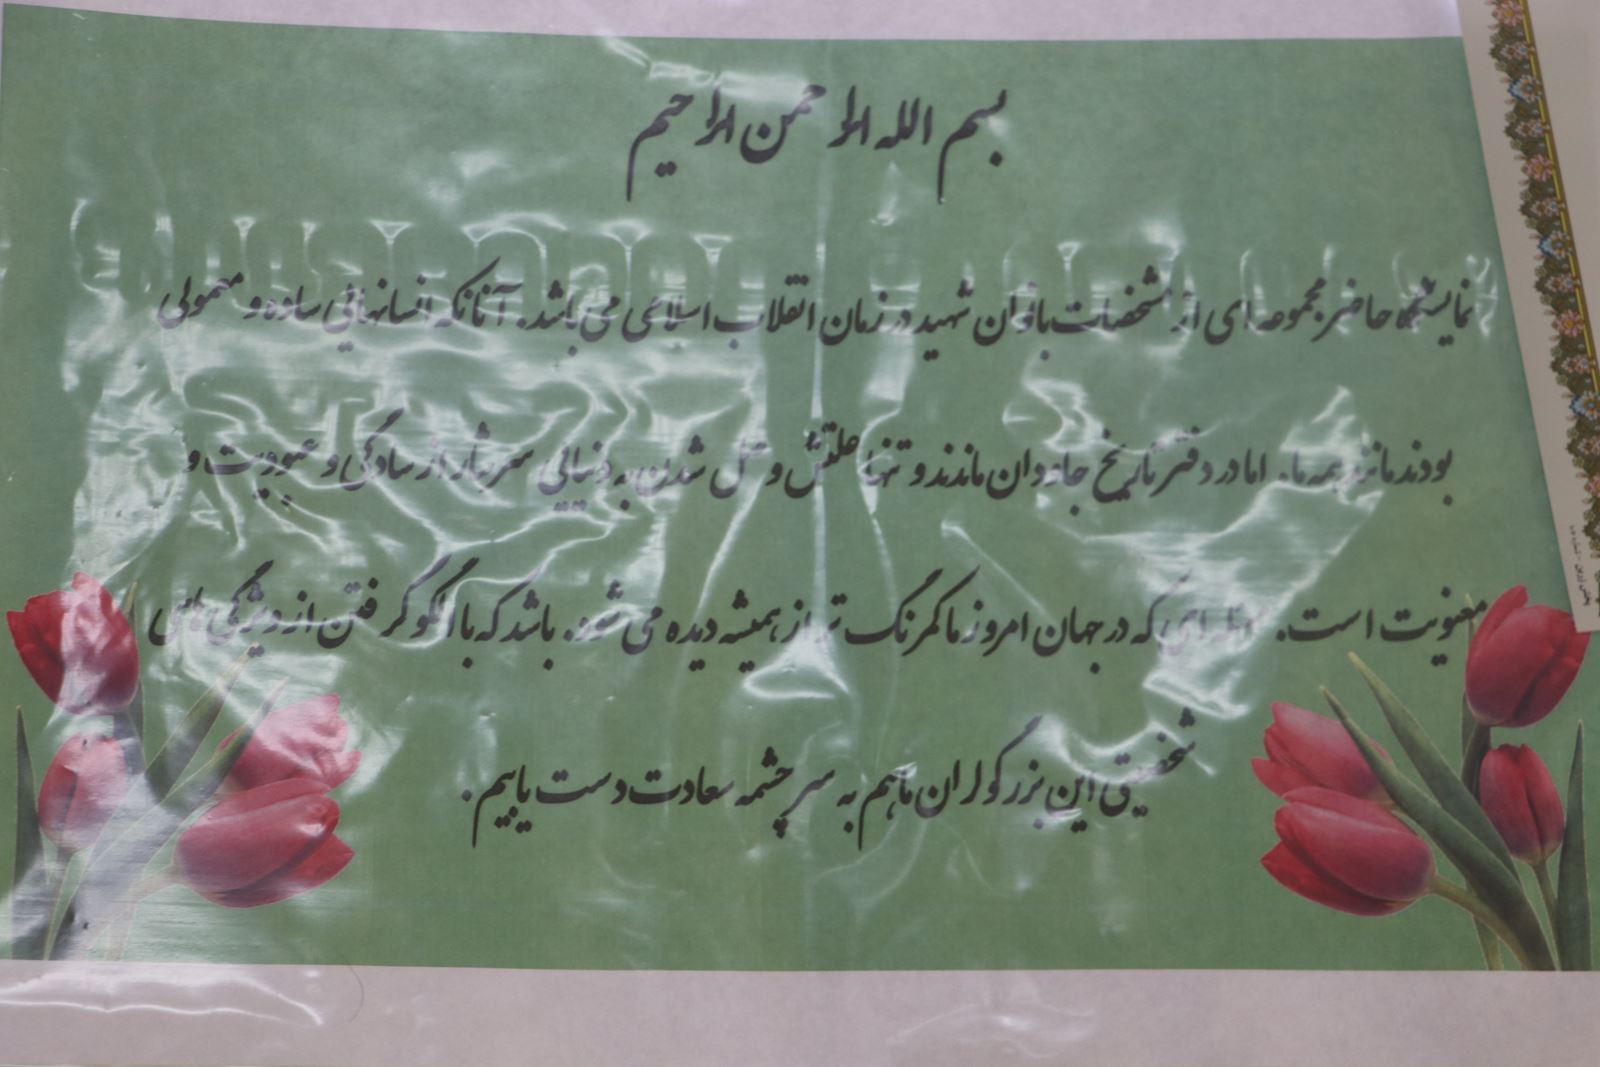 بسم الله الرحمن الرحیم
نمایشگاه حاضر مجموعه ای از مشخصات بانوان شهید در زمان انقلاب اسلامی می باشد. آنانکه انسانهایی ساده و معمولی
بودند مانند همه ما. اما در دفتر تاریخ جاودان ماندند و تنها علتش وصل شدن به دنیایی سرشار از سادگی و عبودیت و
معنویت است. ای که در جهان امروز ما کمرنگ تر از همیشه دیده می شود. باشد که با الگو گرفتن از ویژگی های
شخصیتی این بزرگواران ما هم به سرچشمه سعادت دست یابیم.